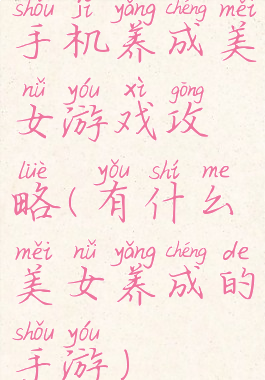 shǒu jī yǎng chéng měi
手机养成美
nǚ yóu xì gōng
女游戏攻
lüè yǒu shí me
略(有什么
měi nǚ yǎng chéng de
美女养成的
shǒu yóu
手游)